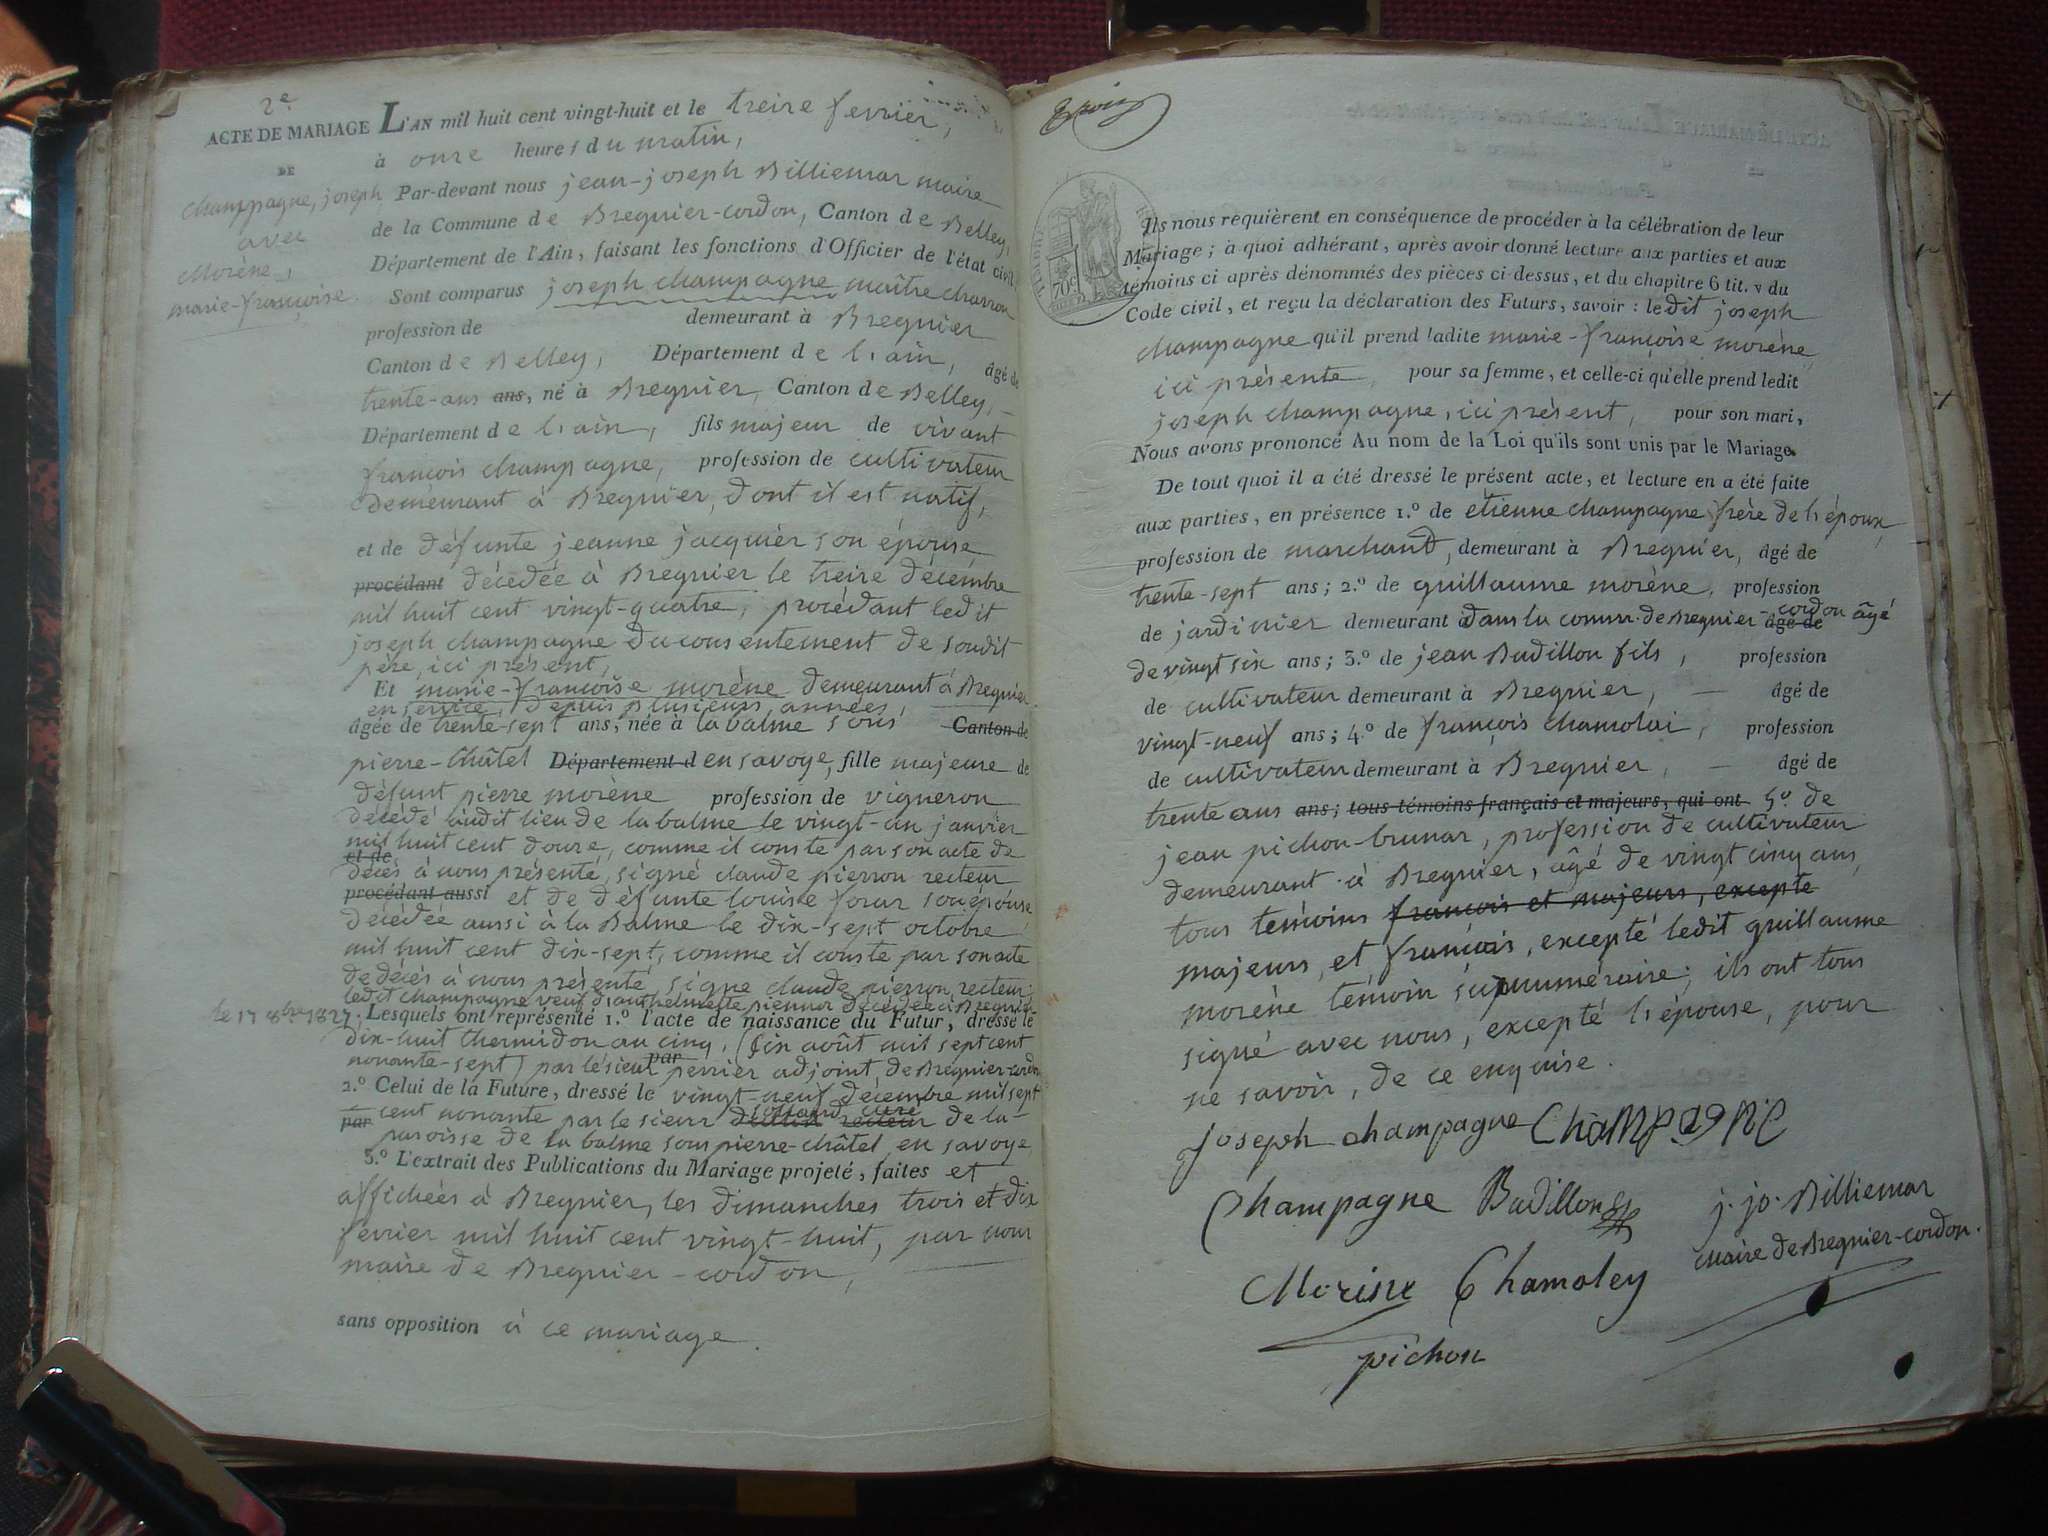 2e
ACTE DE MARIAGE
DE
champagne, joseph
avec
Morène,
marie-françoise
L'AN mil huit cent vingt-huit et le treize fevrier,
à onze heures du matin,
Par-devant nous jean-joseph Billiemar maire
de la Commune de Bregnier-cordon, Canton de Belley,
Département de l'Ain, faisant les fonctions d'Officier de l'état civil
Sont comparus joseph champagne maître charron
profession de demeurant à Bregnier
Canton de Belley, Département de l'ain, âgé de
trente-ans ans, né à Bregnier, Canton de Belley,
Département de l'ain, fils majeur de vivant
françois champagne, profession de cultivateur
demeurant à Bregnier, dont il est natif,
et de défunte jeanne jacquier son épouse
procédant décédée à Bregnier le treize décembre
mil huit cent vingt-quatre, procédant ledit
joseph champagne du consentement de sondit
père, ici présent,
Et marie-françoise morène demeurant à Bregnier
en service, depuis plusieurs années,
âgée de trente-sept ans, née à la balme sous Canton de
pierre-châtel Département d en savoye, fille majeure de
défunt pierre morène profession de vigneron
décédé audit lieu de la balme le vingt-un janvier
mil huit cent douze, comme il conste par son acte de
et de
décès à nous présenté, signé claude pierron recteur
procédant aussi et de défunte louise forax son épouse
décédée aussi à la Balme le dix-sept octobre
mil huit cent dix-sept, comme il conste par son acte
de décès à nous présenté, signé claude pierron recteur;
ledit champagne veuf d'anthelmette décédée à Bregnier
le 17 8bre 1827; Lesquels ont représenté 1.º l'acte de naissance du Futur, dressé le
dix-huit thermidor an cinq, (six août mil sept cent
nonante-sept) par le sieur par perrier adjoint de Bregnier-cordon
2.º Celui de la Future, dressé le vingt-neuf décembre mil sept
par cent nonante par le sieur curé recteur de la
paroisse de la balme sous pierre-châtel en savoye
3.º L'extrait des Publications du Mariage projeté, faites et
affichées à Bregnier, les dimanches trois et dix
fevrier mil huit cent vingt-huit, par nous
maire de Bregnier-cordon,
sans opposition à ce mariage
709
Ils nous requièrent en conséquence de procéder à la célébration de leur
Mariage; à quoi adhérant, après avoir donné lecture aux parties et aux
témoins ci après dénommés des pièces ci-dessus, et du chapitre 6 tit. v du
Code civil, et reçu la déclaration des Futurs, savoir: ledit joseph
champagne qu'il prend ladite marie-françoise morène
ici présente, pour sa femme, et celle-ci qu'elle prend ledit
joseph champagne, ici présent, pour son mari,
Nous avons prononcé Au nom de la Loi qu'ils sont unis par le Mariage.
De tout quoi il a été dressé le présent acte, et lecture en a été faite
aux parties, en présence 1.º de étienne champagne frère de l'époux
profession de marchand, demeurant à Bregnier, âgé de
trente-sept ans; 2.º de guillaume morène, profession
de jardinier demeurant à dans la commu. de Bregnier-cordon âgé de âgé
de vingt six ans; 3.º de jean Badillon fils, profession
de cultivateur demeurant à Bregnier, âgé de
vingt-neuf ans; 4.º de françois chamolai, profession
de cultivateur demeurant à Bregnier, âgé de
trente ans ans; tous témoins français et majeurs, qui ont 5º de
jean pichon-brunar, profession de cultivateur
demeurant à Bregnier, âgé de vingt cinq ans,
tous témoins françois et majeurs, excepté
majeurs, et françois, excepté ledit guillaume
morène témoin supnuméraire; ils ont tous
signé avec nous, excepté l'épouse, pour
ne savoir, de ce enquise.
joseph champagne CHAMPAGNE
Champagne Badillon j. jo. Billiemar
maire de Bregnier-cordon.
Morine Chamoley
pichon